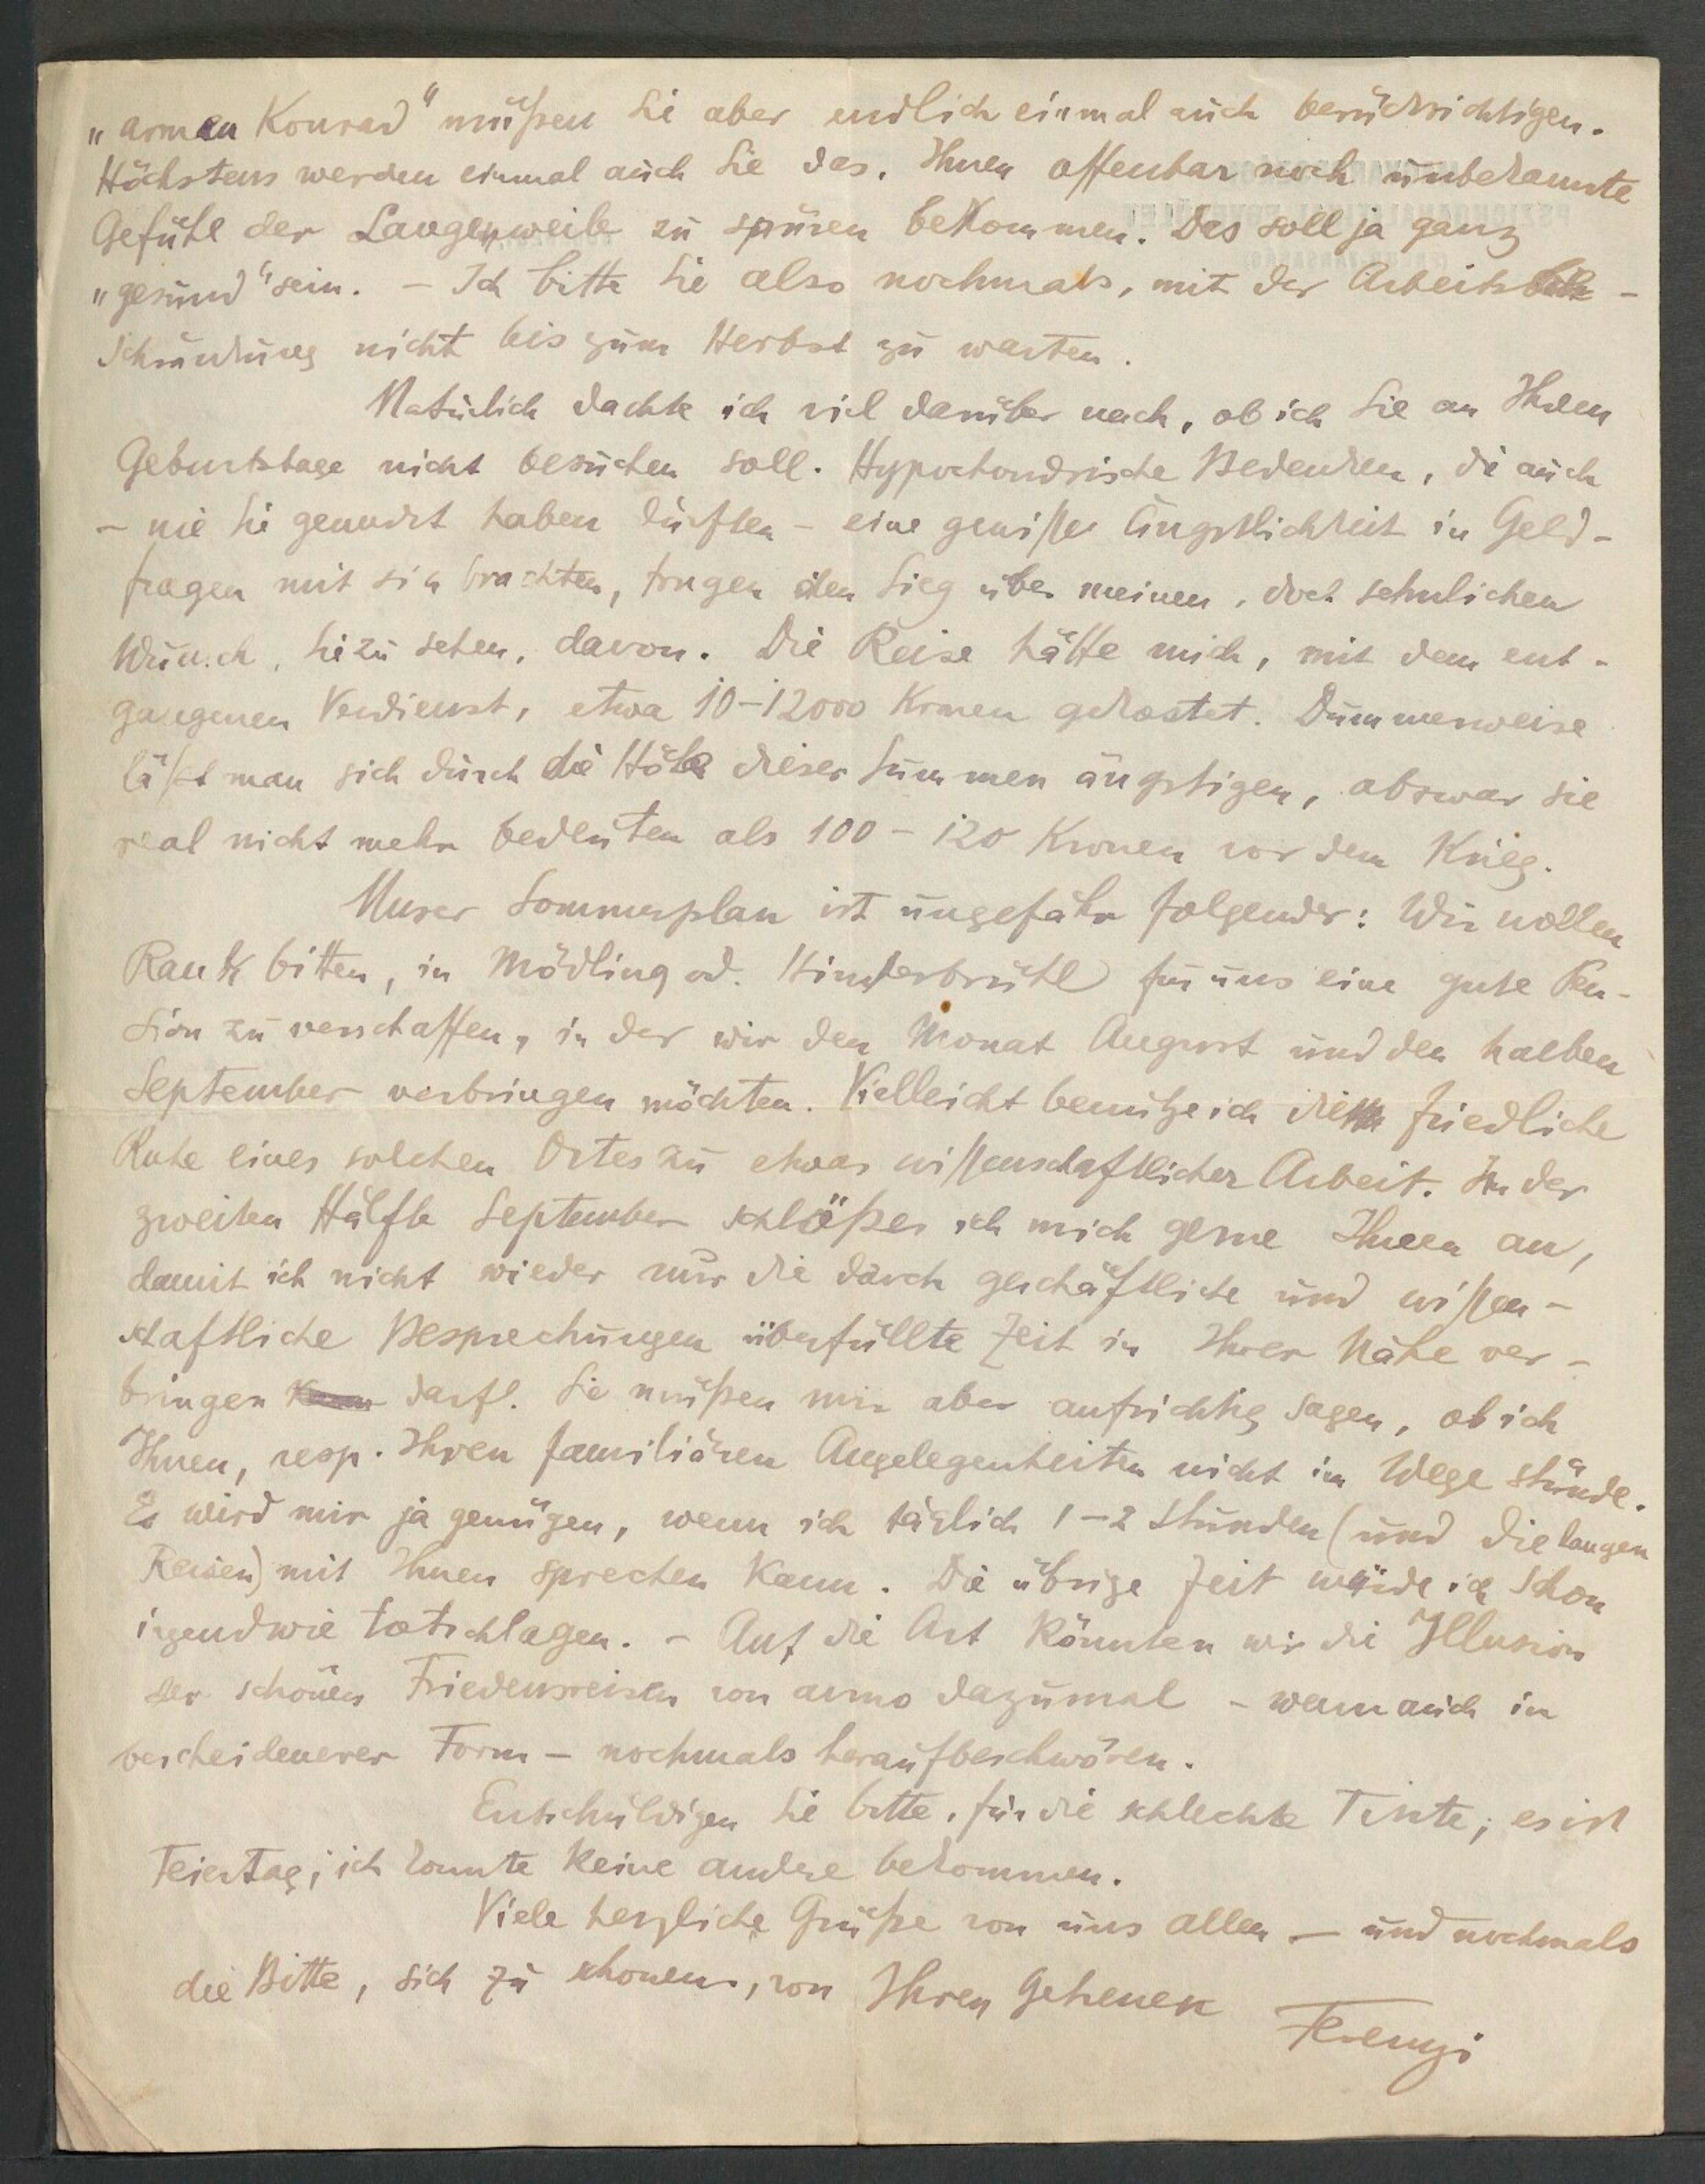 „armen Konrad" müßen Sie aber endlich einmal auch berücksichtigen.
Höchstens werden einmal auch Sie das, Ihnen offenbar noch unbekannte
Gefühl der Langenweile zu spüren bekommen. Das soll ja ganz
„gesund" sein. – Ich bitte Sie also nochmals, mit der Arbeitsbe-
schränkung nicht bis zum Herbst zu warten.
Natürlich dachte ich viel darüber nach, ob ich Sie an Ihrem
Geburtstage nicht besuchen soll. Hypochondrische Bedenken, die auch
– wie Sie gemerkt haben dürften – eine gewiße Ängstlichkeit in Geld-
fragen mit sich brachten, trugen den Sieg über meinen, doch sehnlichen
Wunsch, Sie zu sehen, davon. Die Reise hätte mich, mit dem ent-
gangenen Verdienst, etwa 10–12000 Kronen gekostet. Dummerweise
läßt man sich durch die Höhe dieser Summen ängstigen, obzwar sie
real nicht mehr bedeuten als 100 – 120 Kronen vor dem Krieg.
Unser Sommerplan ist ungefähr folgender: Wir wollen
Rank bitten, in Mödling od. Hinterbrühl für uns eine gute Pen-
sion zu verschaffen, in der wir den Monat August und den halben
September verbringen möchten. Vielleicht benütze ich die friedliche
Ruhe eines solchen Ortes zu etwas wißenschaftlicher Arbeit. In der
zweiten Hälfte September schlöße ich mich gerne Ihnen an,
damit ich nicht wieder nur die durch geschäftliche und wißen-
schaftliche Besprechungen überfüllte Zeit in Ihrer Nähe ver-
bringen darf. Sie müßen mir aber aufrichtig sagen, ob ich
Ihnen, resp. Ihren familiären Angelegenheiten nicht im Wege stünde.
Es wird mir ja genügen, wenn ich täglich 1–2 Stunden (und die langen
Reisen) mit Ihnen sprechen kann. Die übrige Zeit würde ich schon
irgendwie totschlagen. – Auf die Art könnten wir die Illusion
der schönen Friedensreisen von anno dazumal – wenn auch in
bescheidenerer Form – nochmals heraufbeschwören.
Entschuldigen Sie bitte, für die schlechte Tinte; es ist
Feiertag; ich konnte keine andre bekommen.
Viele herzliche Grüße von uns allen – und nochmals
die Bitte, sich zu schonen, von Ihren getreuen
Ferenczi